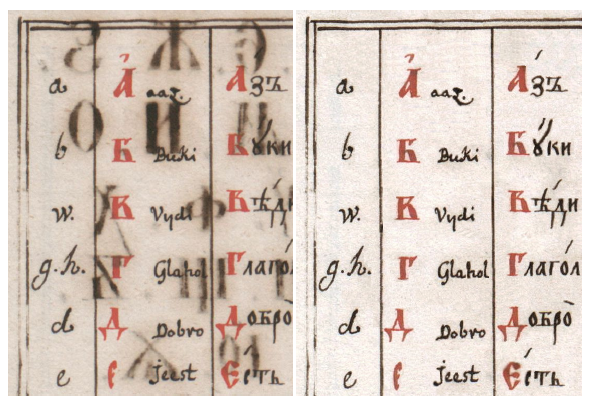 a А aaz. Азъ
b Б Buki Бꙋки
w. В Vydi Вѣди
g.h. Г Glahol Глагол
d Д Dobro Добро
e Е Jeest Есть
a А aaz. Азъ
b Б Buki Бꙋки
w. В Vydi Вѣди
g.h. Г Glahol Глагол
d Д Dobro Добро
e Е Jeest Есть